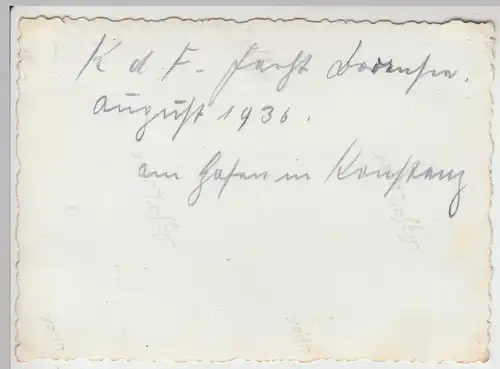 K d F. Fahrt Bodensee.
August 1936.
am Hafen in Konstanz